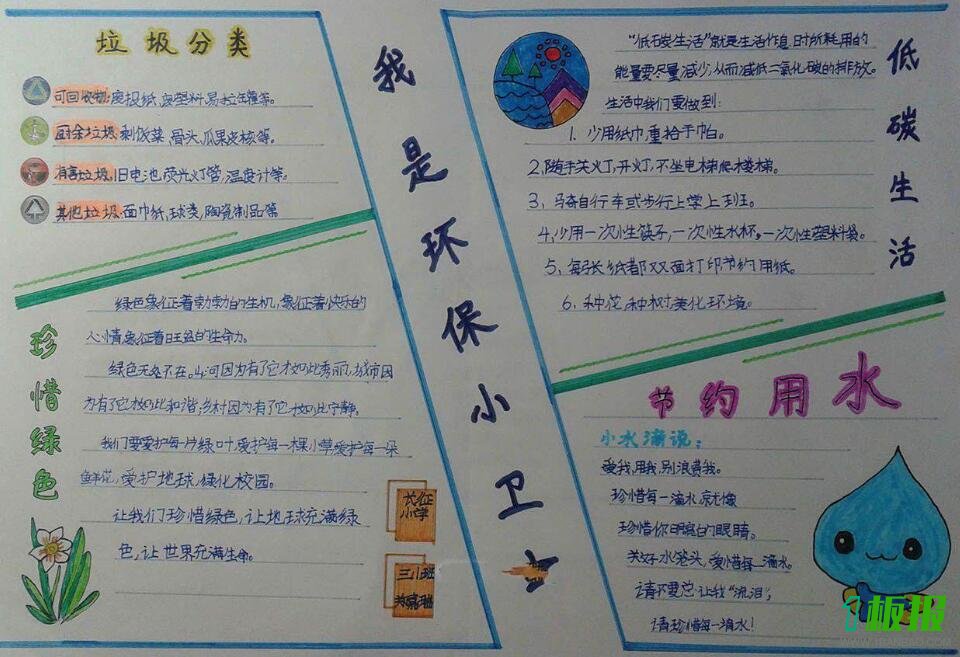 垃圾分类
可回收物:废报纸,废塑料,易拉罐等。
厨余垃圾,剩饭菜,骨头,瓜果皮核等。
有害垃圾,旧电池,荧光灯管,温度计等。
其他垃圾,面巾纸,球类,陶瓷制品等
珍惜绿色
绿色象征着勃勃的生机,象征着快乐的
心情,象征着旺盛的生命力。
绿色无处不在。山河因为有了它才如此秀丽,城市因
为有了它才如此和谐,乡村因为有了它才如此宁静。
我们要爱护每一片绿叶,爱护每一棵小草,爱护每一朵
鲜花,爱护地球,绿化校园。
让我们珍惜绿色,让地球充满绿
色,让世界充满生命。
长征
小学
三小班
我是环保小卫士
低碳生活
“低碳生活”就是生活作息时所耗用的
能量要尽量减少,从而减低二氧化碳的排放。
生活中我们要做到:
1、少用纸巾,重拾手帕。
2,随手关灯,开灯,不坐电梯爬楼梯。
3、骑自行车或步行上学上班。
4,少用一次性筷子,一次性水杯,一次性塑料袋。
5、每张纸都双面打印节约用纸。
6、种花种树美化环境。
节约用水
小水滴说:
爱我,用我,别浪费我。
珍惜每一滴水,就像
珍惜你明亮的眼睛。
关好水龙头,爱惜每一滴水。
请不要总让我“流泪”,
请珍惜每一滴水!
板报